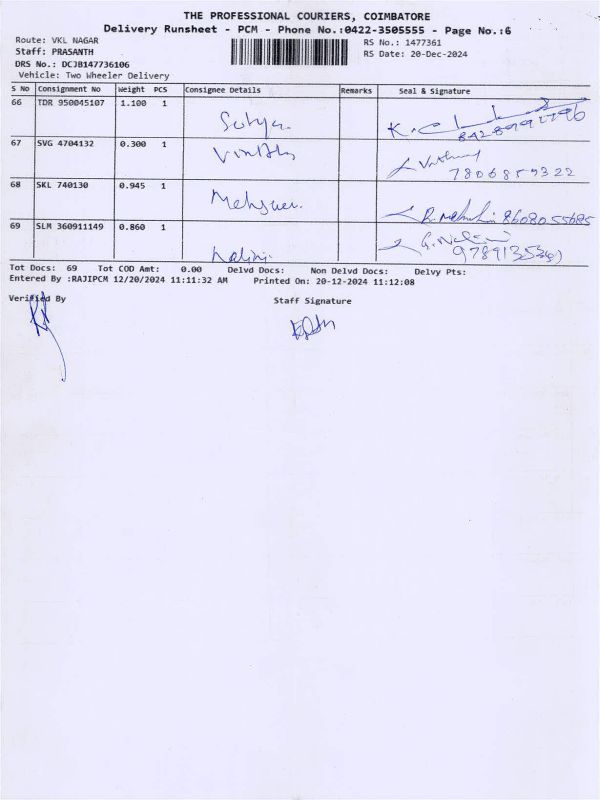 THE PROFESSIONAL COURIERS, COIMBATORE
Delivery Runsheet - PCM - Phone No.:0422-3505555 - Page No.:6
Route: VKL NAGAR RS No.: 1477361
Staff: PRASANTH RS Date: 20-Dec-2024
DRS No.: DCJB147736106
Vehicle: Two Wheeler Delivery
S No Consignment No Weight PCS Consignee Details Remarks Seal & Signature
66 TDR 950045107 1.100 1 Sathya
67 SVG 4704132 0.300 1
7806859322
68 SKL 740130 0.945 1
8608055685
69 SLM 360911149 0.860 1 Nalini
Tot Docs: 69 Tot COD Amt: 0.00 Delvd Docs: Non Delvd Docs: Delvy Pts:
Entered By :RAJIPCM 12/20/2024 11:11:32 AM Printed On: 20-12-2024 11:12:08
Verified By Staff Signature